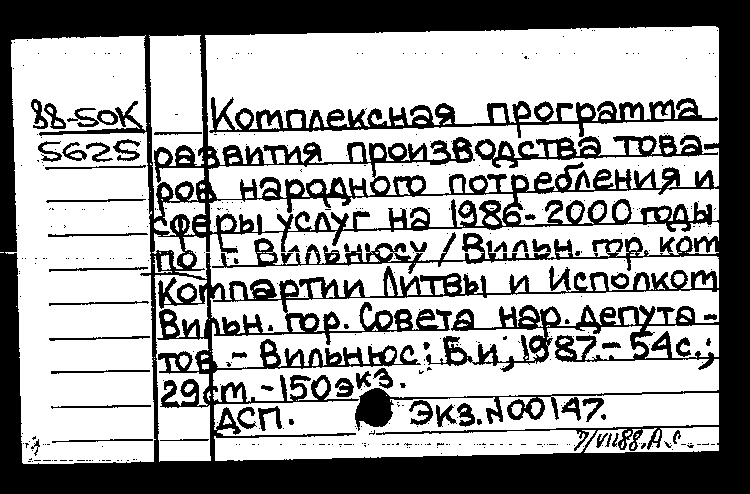 88-50К Комплексная программа
5625 развития производства това-
ров народного потребления и
сферы услуг на 1986-2000 годы
по г. Вильнюсу / Вильн. гор. ком
Компартии Литвы и Исполком
Вильн. гор. Совета нар. депута-
тов. - Вильнюс: Б.и, 1987. - 54с.;
29см. - 150экз.
ДСП. Экз.N00147.
7/VII88. А.С.